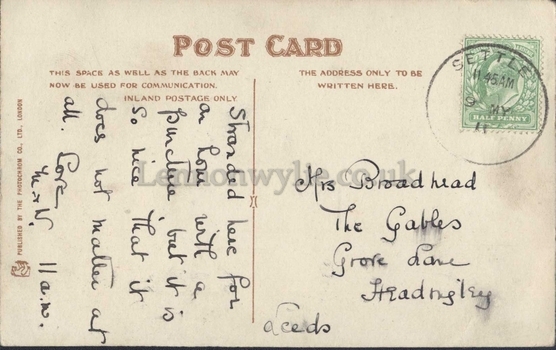 POST CARD
THIS SPACE AS WELL AS THE BACK MAY
NOW BE USED FOR COMMUNICATION.
INLAND POSTAGE ONLY.
THE ADDRESS ONLY TO BE
WRITTEN HERE.
SETTLE
11.45AM
9 MY
11
HALF PENNY
Stranded here for
an hour with a
puncture but it is
so nice that it
does not matter at
all. Love,
M & N.
11 a.m.
Mrs Broadhead
The Gables
Grove Lane
Headingley
Leeds
PUBLISHED BY THE PHOTOCHROM CO., LTD., LONDON
Lennonwylie.co.uk